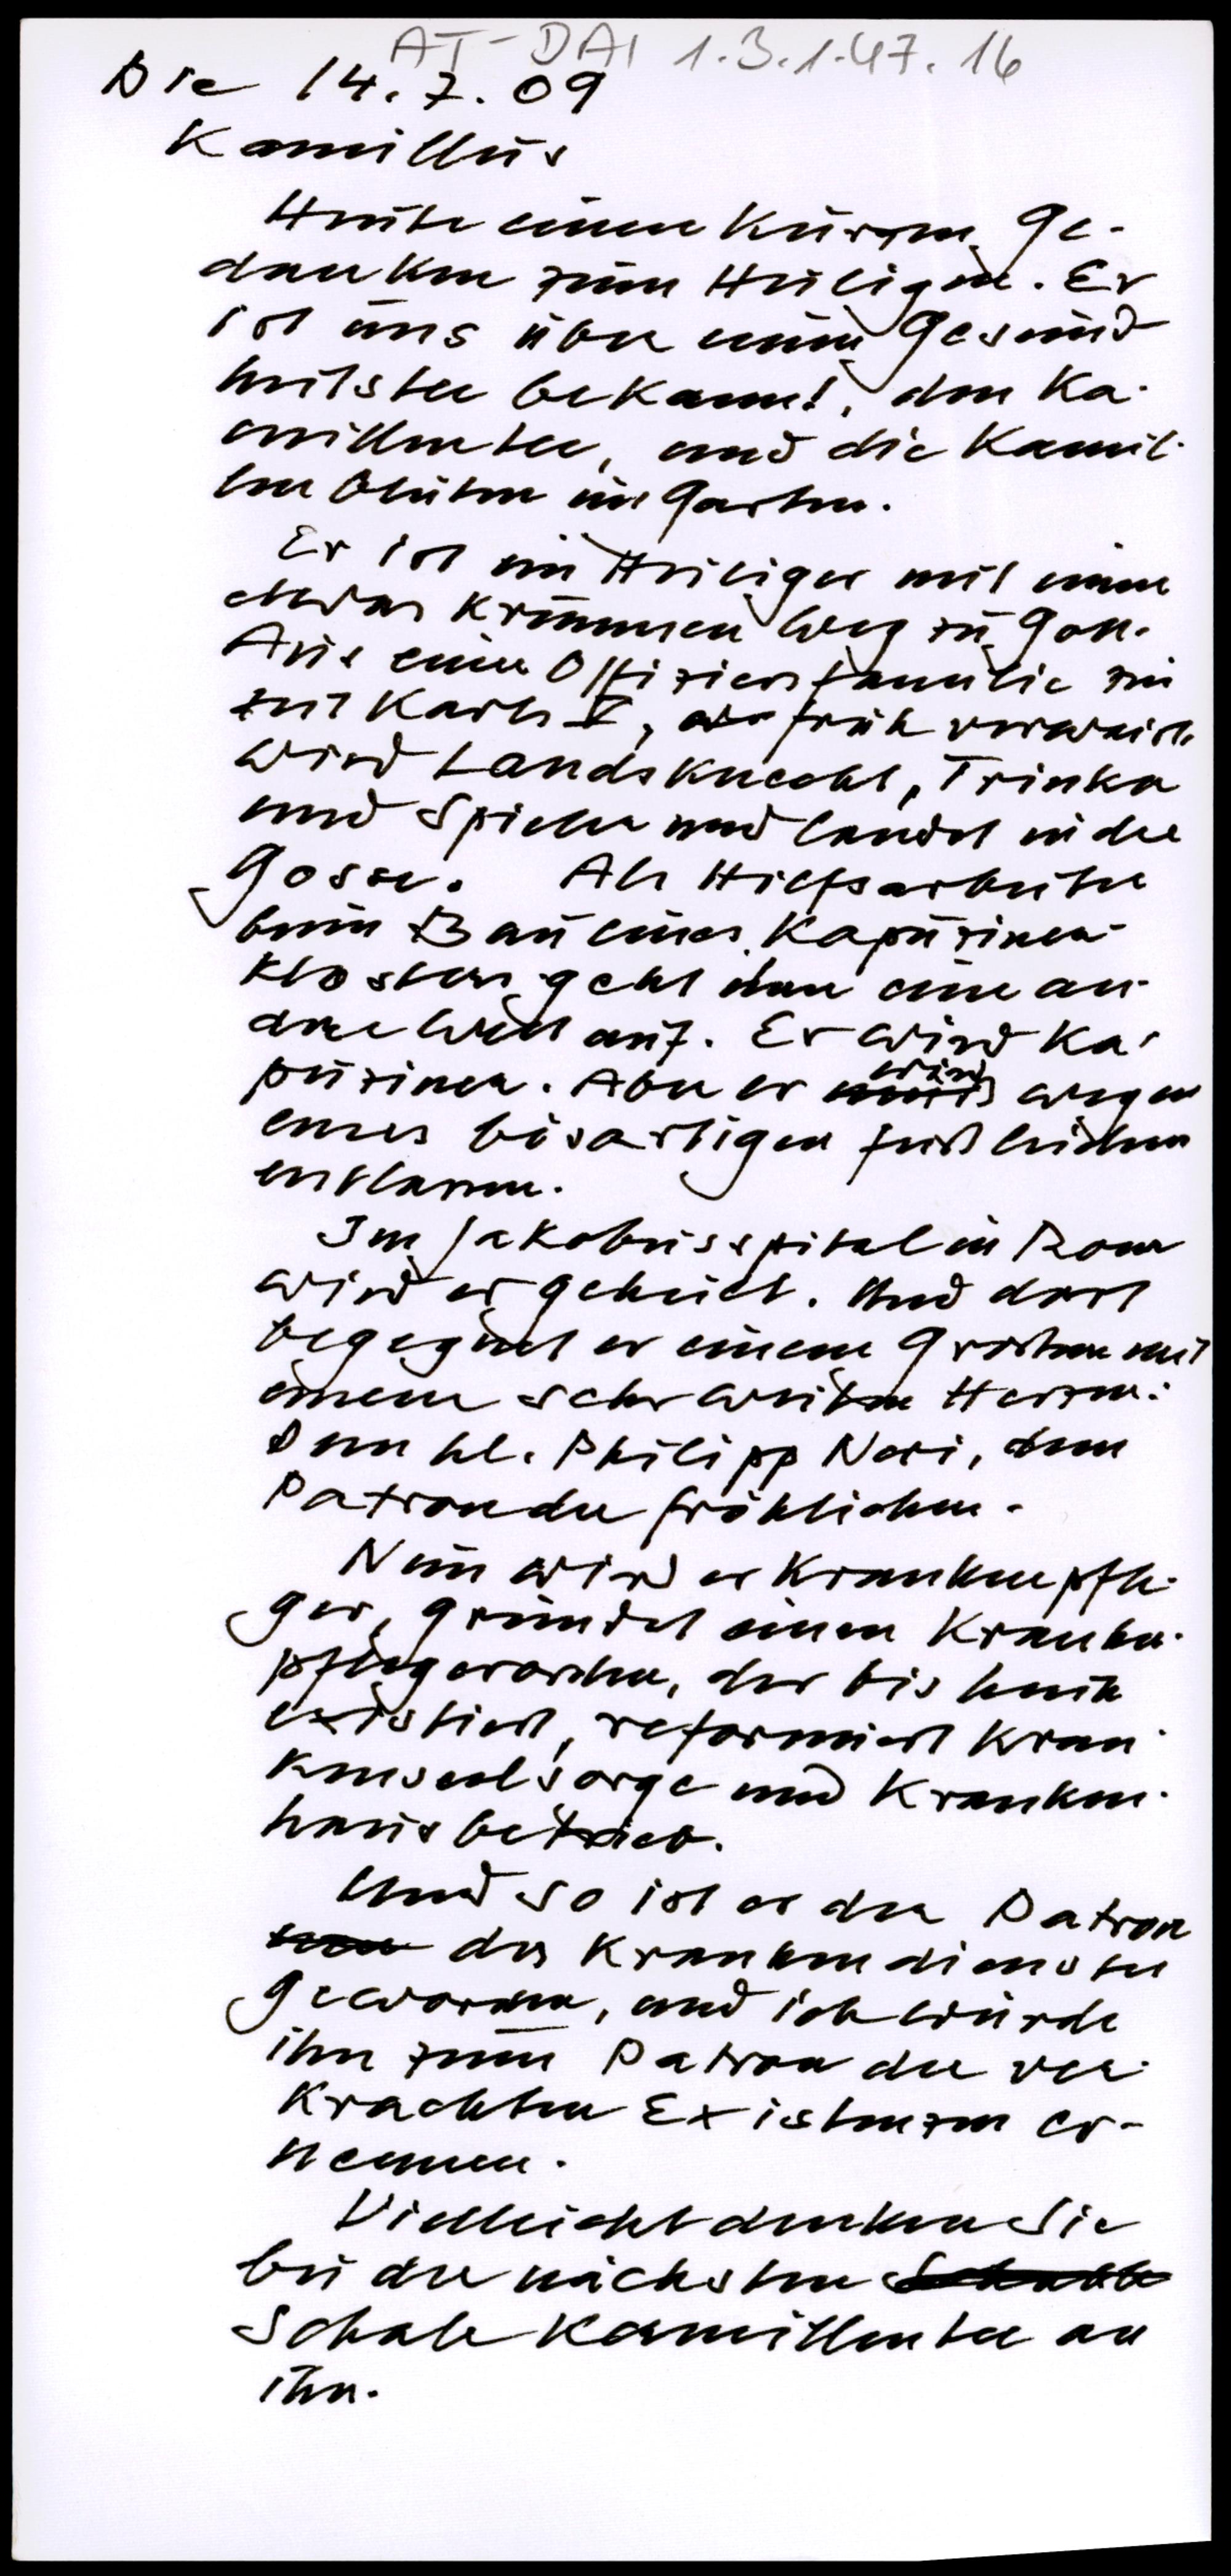 AT-DAI 1.3.1.47.16
Die 14.7.09
Kamillus
Heute einen kurzen Ge-
danken zum Heiligen. Er
ist uns über einen Gesund
heitstee bekannt, den Ka-
millentee, und die Kamil-
lenblüten im Garten.
Er ist ein Heiliger mit einem
etwas krummen Weg zu Gott.
Aus einer Offiziersfamilie zur
Zeit Karls V, früh verwaist
wird Landsknecht, Trinker
und Spieler und landet in der
Gosse. Als Hilfsarbeiter
beim Bau eines Kapuziner-
klosters geht ihm eine an-
dere Welt auf. Er wird Ka-
puziner. Aber er muß wird wegen
eines bösartigen Fußleidens
entlassen.
Im Jakobusspital in Rom
wird er geheilt. Und dort
begegnet er einem Großen mit
einem sehr weiten Herzen:
Dem hl. Philipp Neri, dem
Patron der Fröhlichen.
Nun wird er Krankenpfle-
ger, gründet einen Kranken-
pflegerorden, der bis heute
existiert, reformiert Kran-
kenseelsorge und Kranken-
hausbetrieb.
Und so ist er der Patron
des Krankendienstes
geworden, und ich würde
ihn zum Patron der ver-
krachten Existenzen er-
nennen.
Vielleicht denken Sie
bei der nächsten Schale
Schale Kamillentee an
ihn.